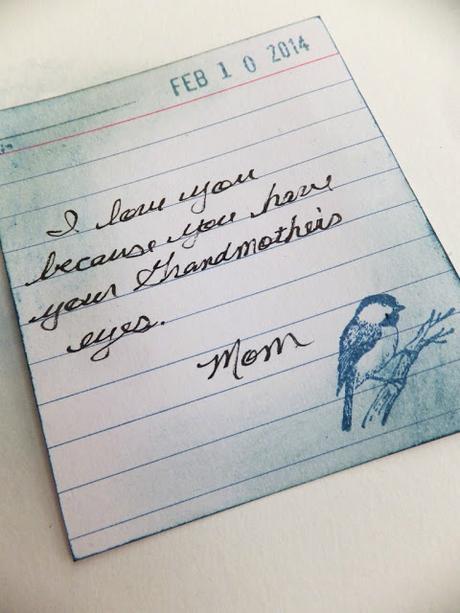 FEB 10 2014
I love you
because you have
your Grandmother's
eyes.
Mom